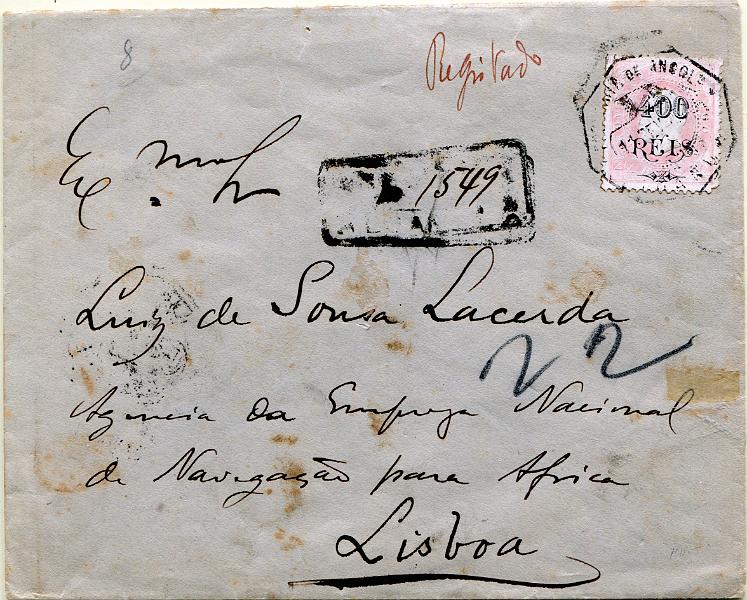 8
Registado
DE ANGOLA
400
REIS
Exmo Sr
1549
Luiz de Sousa Lacerda
22
Agencia da Empreza Nacional
de Navegação para Africa
Lisboa